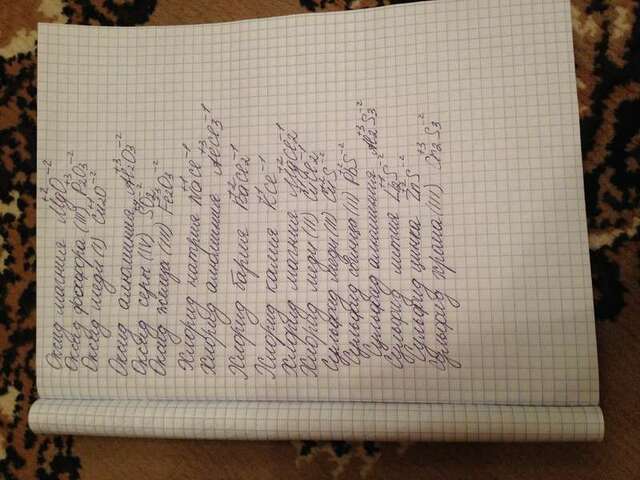 Оксид магния Mg⁺²O⁻²
Оксид фосфора (III) P₂⁺³O₃⁻²
Оксид меди (I) Cu₂⁺¹O⁻²
Оксид алюминия Al₂⁺³O₃⁻²
Оксид серы (IV) S⁺⁴O₂⁻²
Оксид железа (III) Fe₂⁺³O₃⁻²
Хлорид натрия Na⁺¹Cl⁻¹
Хлорид алюминия Al⁺³Cl₃⁻¹
Хлорид бария Ba⁺²Cl₂⁻¹
Хлорид калия K⁺¹Cl⁻¹
Хлорид магния Mg⁺²Cl₂⁻¹
Хлорид меди (II) Cu⁺²Cl₂⁻¹
Сульфид меди (II) Cu⁺²S⁻²
Сульфид свинца (II) Pb⁺²S⁻²
Сульфид алюминия Al₂⁺³S₃⁻²
Сульфид лития Li₂⁺¹S⁻²
Сульфид цинка Zn⁺²S⁻²
Сульфид хрома (III) Cr₂⁺³S₃⁻²